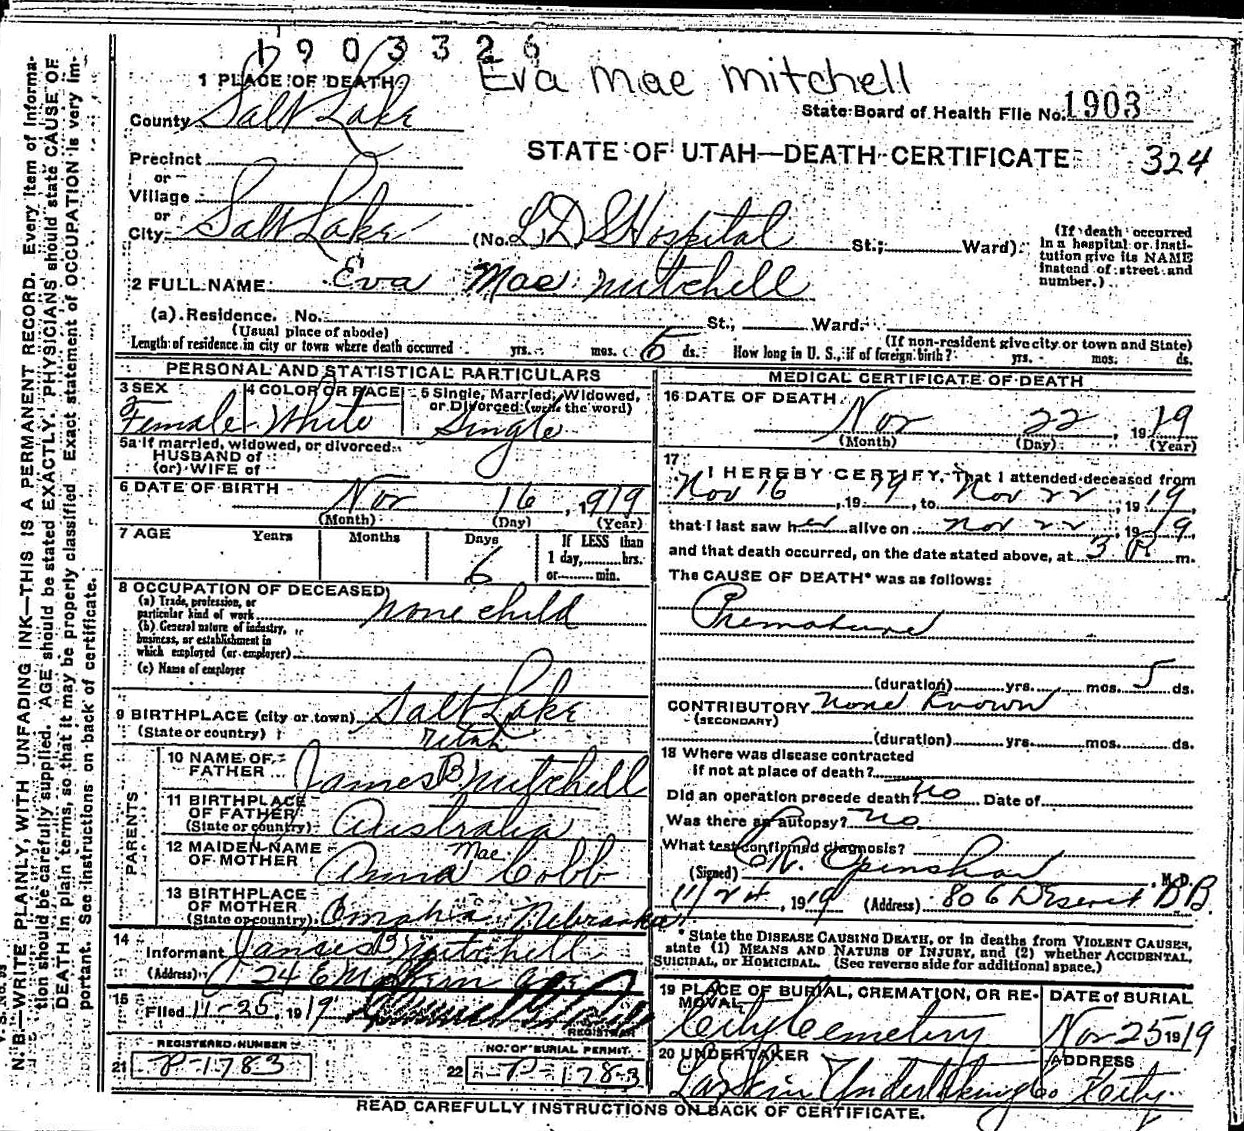 1903326
Eva Mae Mitchell
1 PLACE OF DEATH
County Salt Lake
State Board of Health File No. 1903
Precinct
STATE OF UTAH—DEATH CERTIFICATE 324
or
Village
or
City Salt Lake (No. L.D.S Hospital St.; Ward)
(If death occurred in a hospital or institution give its NAME instead of street and number.)
2 FULL NAME Eva Mae Mitchell
(a) Residence. No. St., Ward.
(Usual place of abode) (If non-resident give city or town and State)
Length of residence in city or town where death occurred yrs. mos. 6 ds. How long in U. S., if of foreign birth? yrs. mos. ds.
PERSONAL AND STATISTICAL PARTICULARS
3 SEX 4 COLOR OR RACE 5 Single, Married, Widowed, or Divorced (write the word)
Female White Single
5a If married, widowed, or divorced
HUSBAND of
(or) WIFE of
6 DATE OF BIRTH Nov 16, 1919
(Month) (Day) (Year)
7 AGE Years Months Days If LESS than
1 day, hrs.
6 or min.
8 OCCUPATION OF DECEASED
(a) Trade, profession, or
particular kind of work none child
(b) General nature of industry,
business, or establishment in
which employed (or employer)
(c) Name of employer
9 BIRTHPLACE (city or town) Salt Lake
(State or country) Utah
PARENTS
10 NAME OF FATHER James B Mitchell
11 BIRTHPLACE OF FATHER (State or country) Australia
12 MAIDEN NAME OF MOTHER Anna Mae Cobb
13 BIRTHPLACE OF MOTHER (State or country) Omaha Nebraska
14
Informant James B Mitchell
(Address) 24 E
15
Filed 11-25, 1919
REGISTRAR
REGISTERED NUMBER NO. OF BURIAL PERMIT
21 P-1783 22 P-1783
MEDICAL CERTIFICATE OF DEATH
16 DATE OF DEATH
Nov 22, 1919
(Month) (Day) (Year)
17
I HEREBY CERTIFY, That I attended deceased from
Nov 16, 1919, to Nov 22, 1919,
that I last saw her alive on Nov 22, 1919,
and that death occurred, on the date stated above, at 3 P. m.
The CAUSE OF DEATH* was as follows:
Premature
(duration) yrs. mos. 5 ds.
CONTRIBUTORY None Known
(SECONDARY)
(duration) yrs. mos. ds.
18 Where was disease contracted
if not at place of death?
Did an operation precede death? No Date of
Was there an autopsy? No
What test confirmed diagnosis?
(Signed) Openshaw, M.D.
11/24, 1919 (Address) 806 Deseret B B.
* State the DISEASE CAUSING DEATH, or in deaths from VIOLENT CAUSES,
state (1) MEANS AND NATURE OF INJURY, and (2) whether ACCIDENTAL,
SUICIDAL, or HOMICIDAL. (See reverse side for additional space.)
19 PLACE OF BURIAL, CREMATION, OR REMOVAL DATE of BURIAL
City Cemetery Nov 25 1919
20 UNDERTAKER ADDRESS
Larkin Undertaking Co City
READ CAREFULLY INSTRUCTIONS ON BACK OF CERTIFICATE.
N. B.—WRITE PLAINLY, WITH UNFADING INK—THIS IS A PERMANENT RECORD. Every item of Informa-
tion should be carefully supplied. AGE should be stated EXACTLY. PHYSICIANS should state CAUSE OF
DEATH in plain terms, so that it may be properly classified. Exact statement of OCCUPATION is very im-
portant. See instructions on back of certificate.